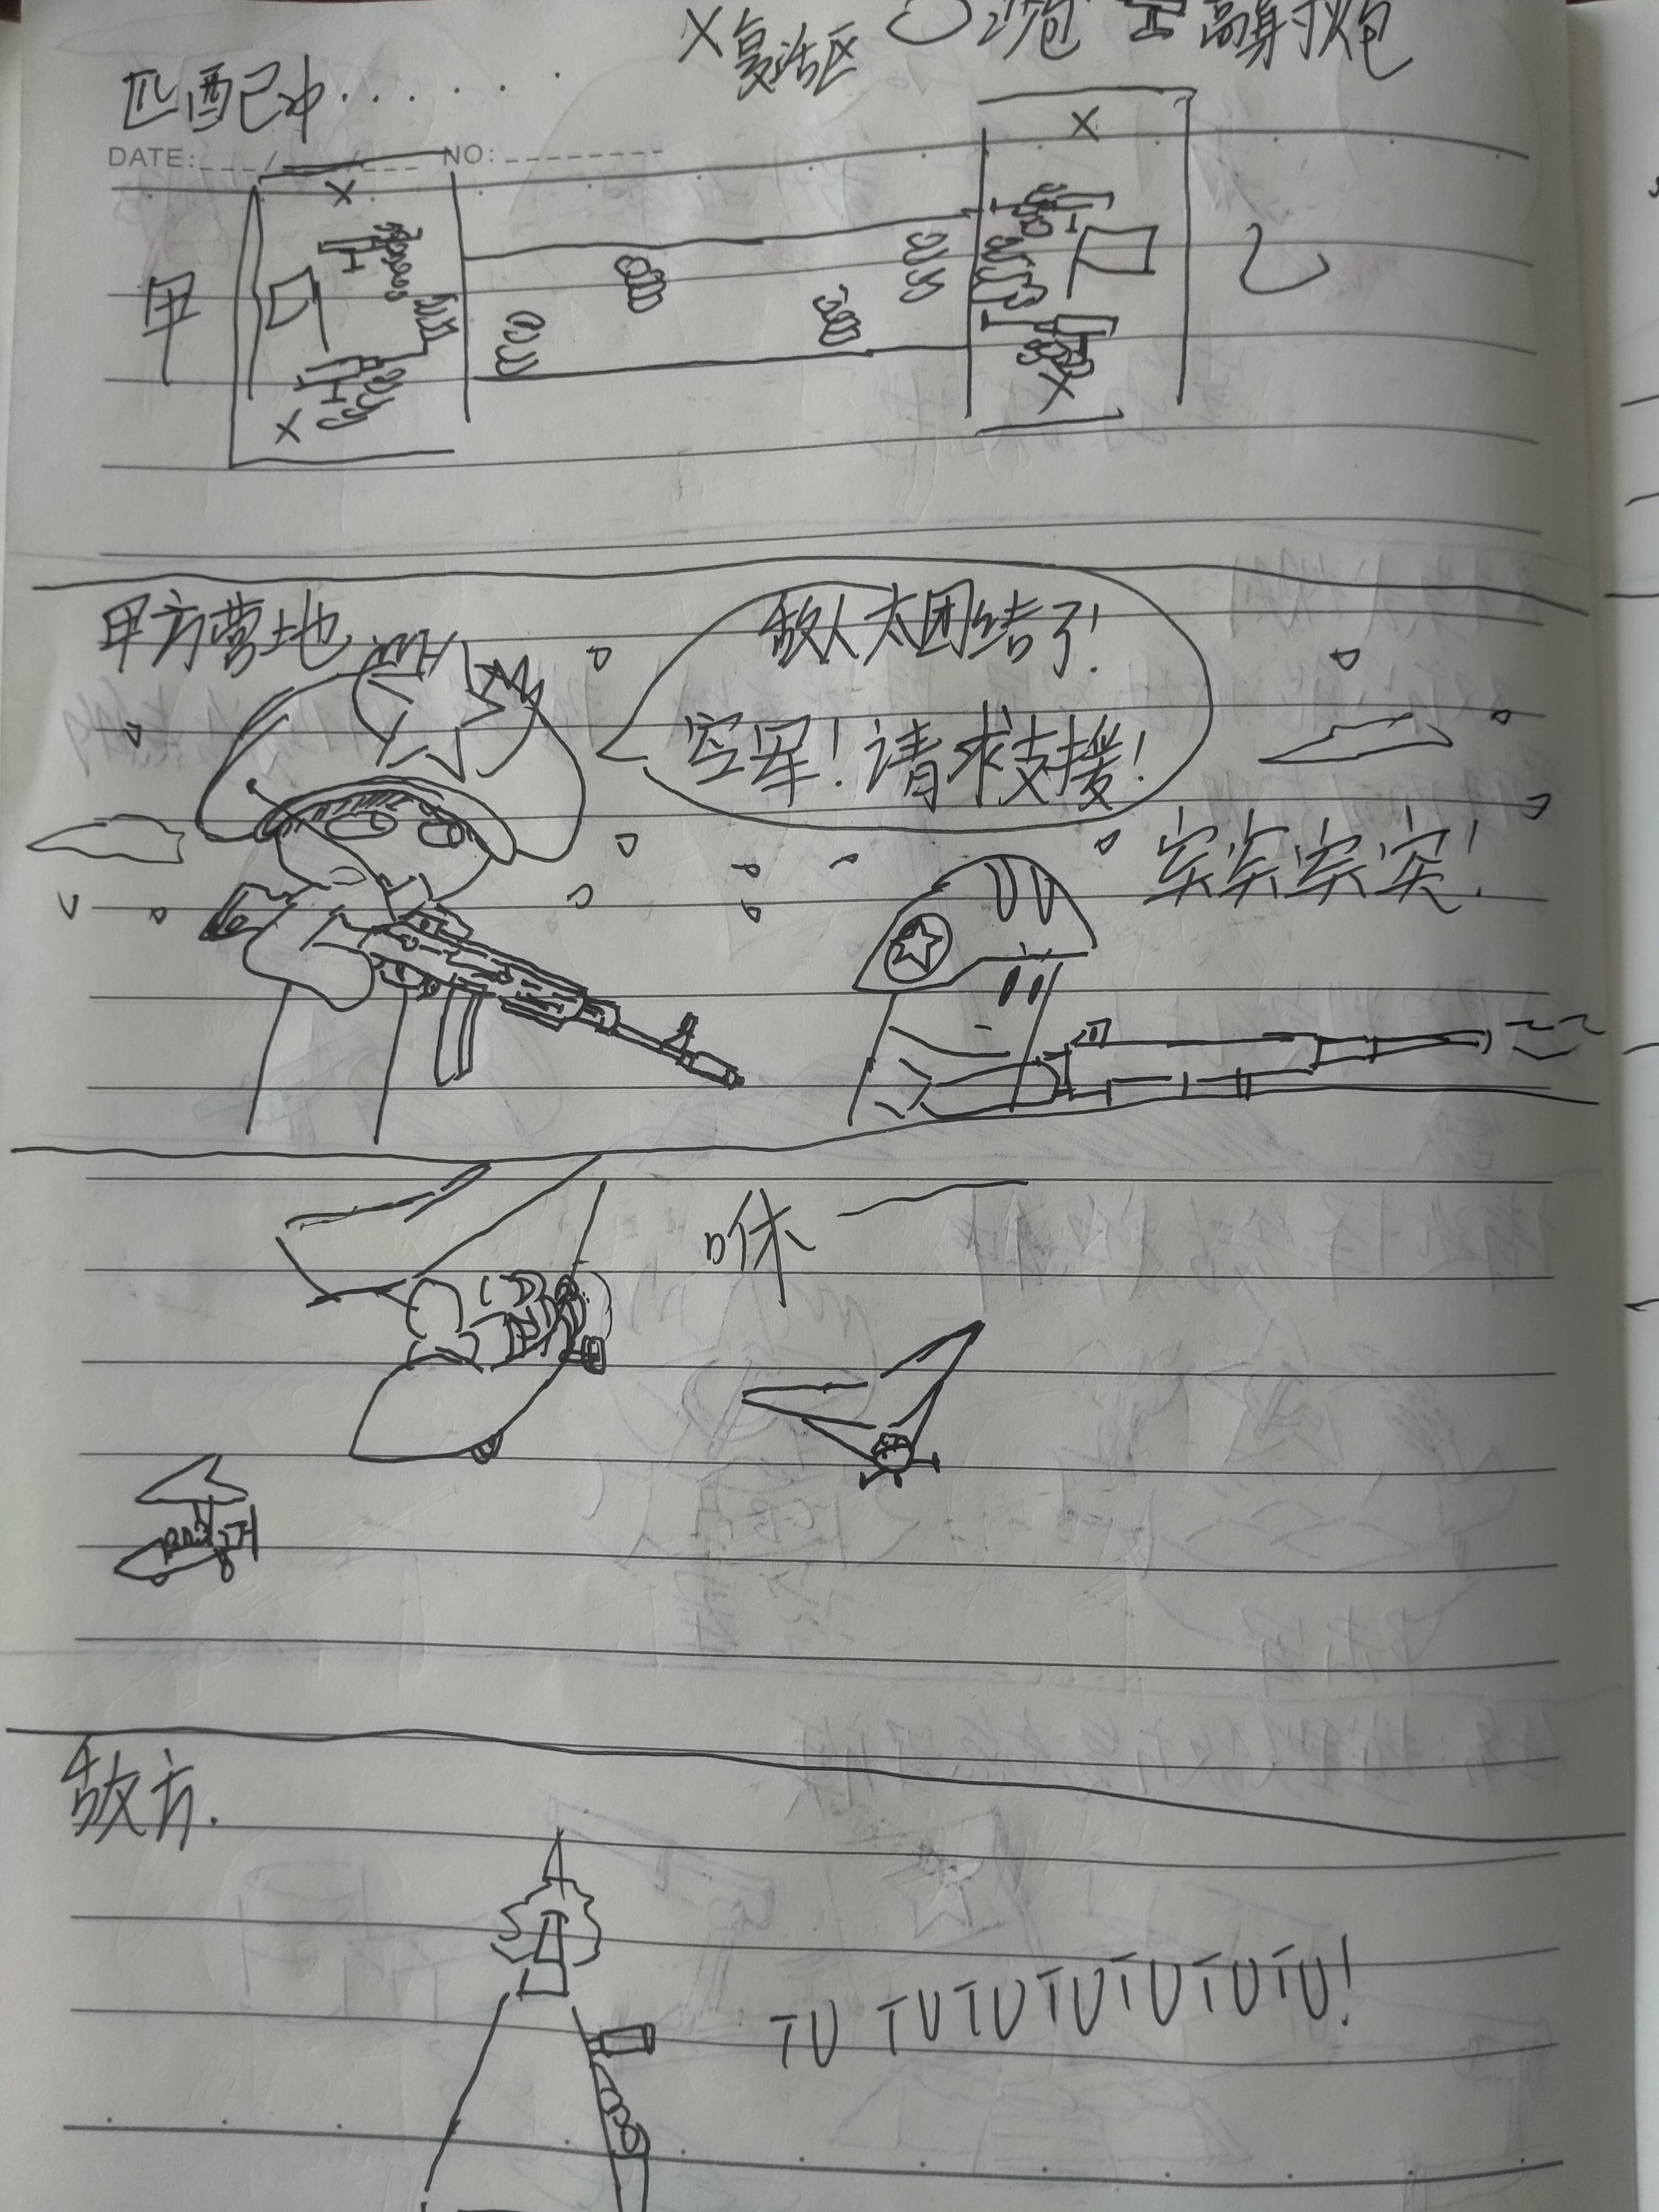 X复活区 〇沙包 高射炮
匹配中......
DATE: / / NO:
甲
乙
甲方营地
敌人太团结了!
空军!请求支援!
突突突突!
咻—
敌方.
TU TUTUTUTUTUTU!